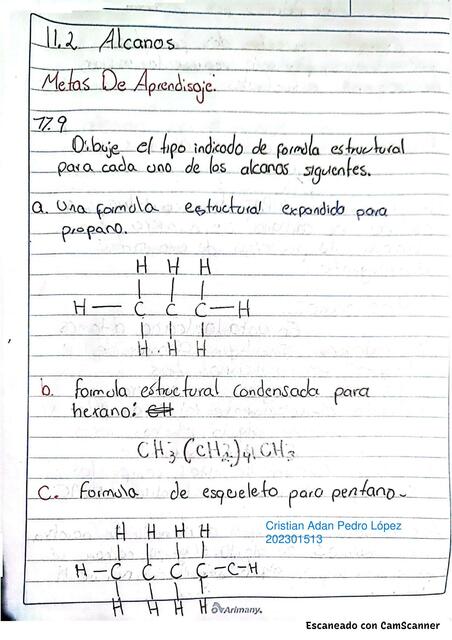 11.2 Alcanos
Metas De Aprendisaje:
11.9
Dibuje el tipo indicado de formula estructural
para cada uno de los alcanos siguientes.
a. Una formula estructural expandido para
propano.
H H H
H — C C C — H
H H H
b. formula estructural condensada para
hexano: CH
CH3 (CH2)4 CH3
C. Formula de esqueleto para pentano-
Cristian Adan Pedro López
202301513
H H H H
H - C C C C - C - H
H H H H
Arimany.
Escaneado con CamScanner